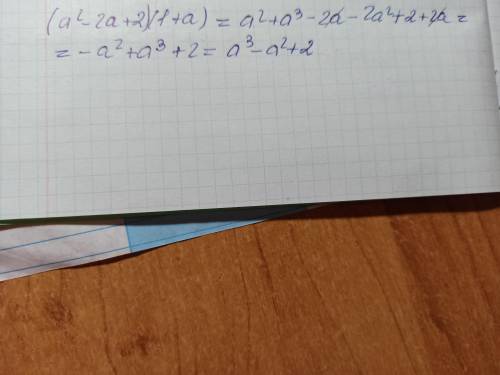 (a²-2a+2)(1+a) = a²+a³-2a-2a²+2+2a=
= -a²+a³+2 = a³-a²+2